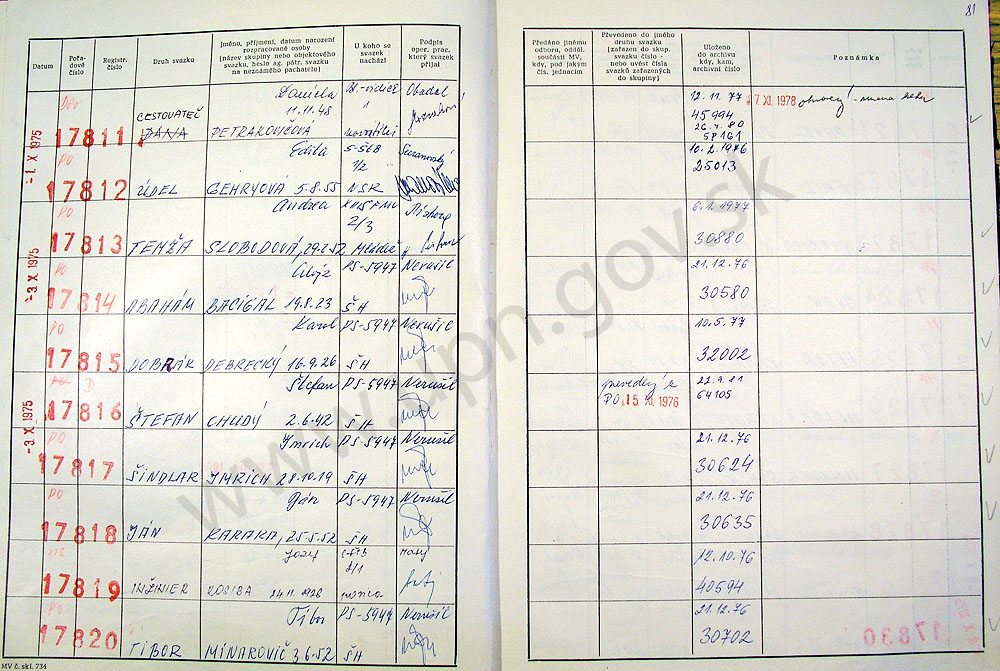 81
Datum
Pořa-
dové
číslo
Registr.
číslo
Druh svazku
Jméno, příjmení, datum narození
rozpracované osoby
(název skupiny nebo objektového
svazku, heslo ag. pátr. svazku
na neznámého pachatele)
U koho se
svazek
nachází
Podpis
oper. prac.
který svazek
přijal
Předáno jinému
odboru, odděl.
součásti MV,
kdy, pod jakým
čís. jednacím
Převedeno do jiného
druhu svazku
(zařazen do skup.
svazku číslo -
nebo uvést čísla
svazků zařazených
do skupiny)
Uloženo
do archivu
kdy, kam,
archivní číslo
Poznámka
-1. X 1975
17811
CESTOVATEĽ
DANA
Daniela
11.11.48
PETRAKOVIČOVÁ
Obadal
12.11.77
45994
26.4.80
58161
27 XI. 1978
PO
17812
ŽIDEL
Edita
GEHRYOVÁ 5.8.55
5-ŠtB
1/2
NSR
10.2.1976
25013
PO
17813
TEMŽA
Andrea
SLOBODOVÁ, 29.2.52
2/3
Mládež
6.1.1977
30880
-3. X 1975
PO
17814
ABAHÁM
Alojz
BACIGÁL 19.8.23
PS-5947
ŠH
Nerušil
21.12.76
30580
PO
17815
DOBRÁK
Karol
DEBRECKÝ 16.9.26
PS-5947
ŠH
Nerušil
10.5.77
32002
-3. X 1975
D
17816
ŠTEFAN
Štefan
CHUDÝ 2.6.42
PS-5947
ŠH
Nerušil
PO 15. XI. 1976
22.9.81
64105
PO
17817
ŠINDLAR
Imrich
IMRICH 28.10.19
PS-5947
ŠH
Nerušil
21.12.76
30624
PO
17818
JÁN
Ján
KARAKA, 25.5.52
PS-5947
ŠH
Nerušil
21.12.76
30635
17819
INŽINIER
Jozef
KOSIBA 24.11.1926
2/1
12.10.76
40594
PO
17820
TIBOR
Tibor
MINAROVIČ 3.6.52
PS-5947
ŠH
Nerušil
21.12.76
30702
MV č. skl. 734
www.upn.gov.sk